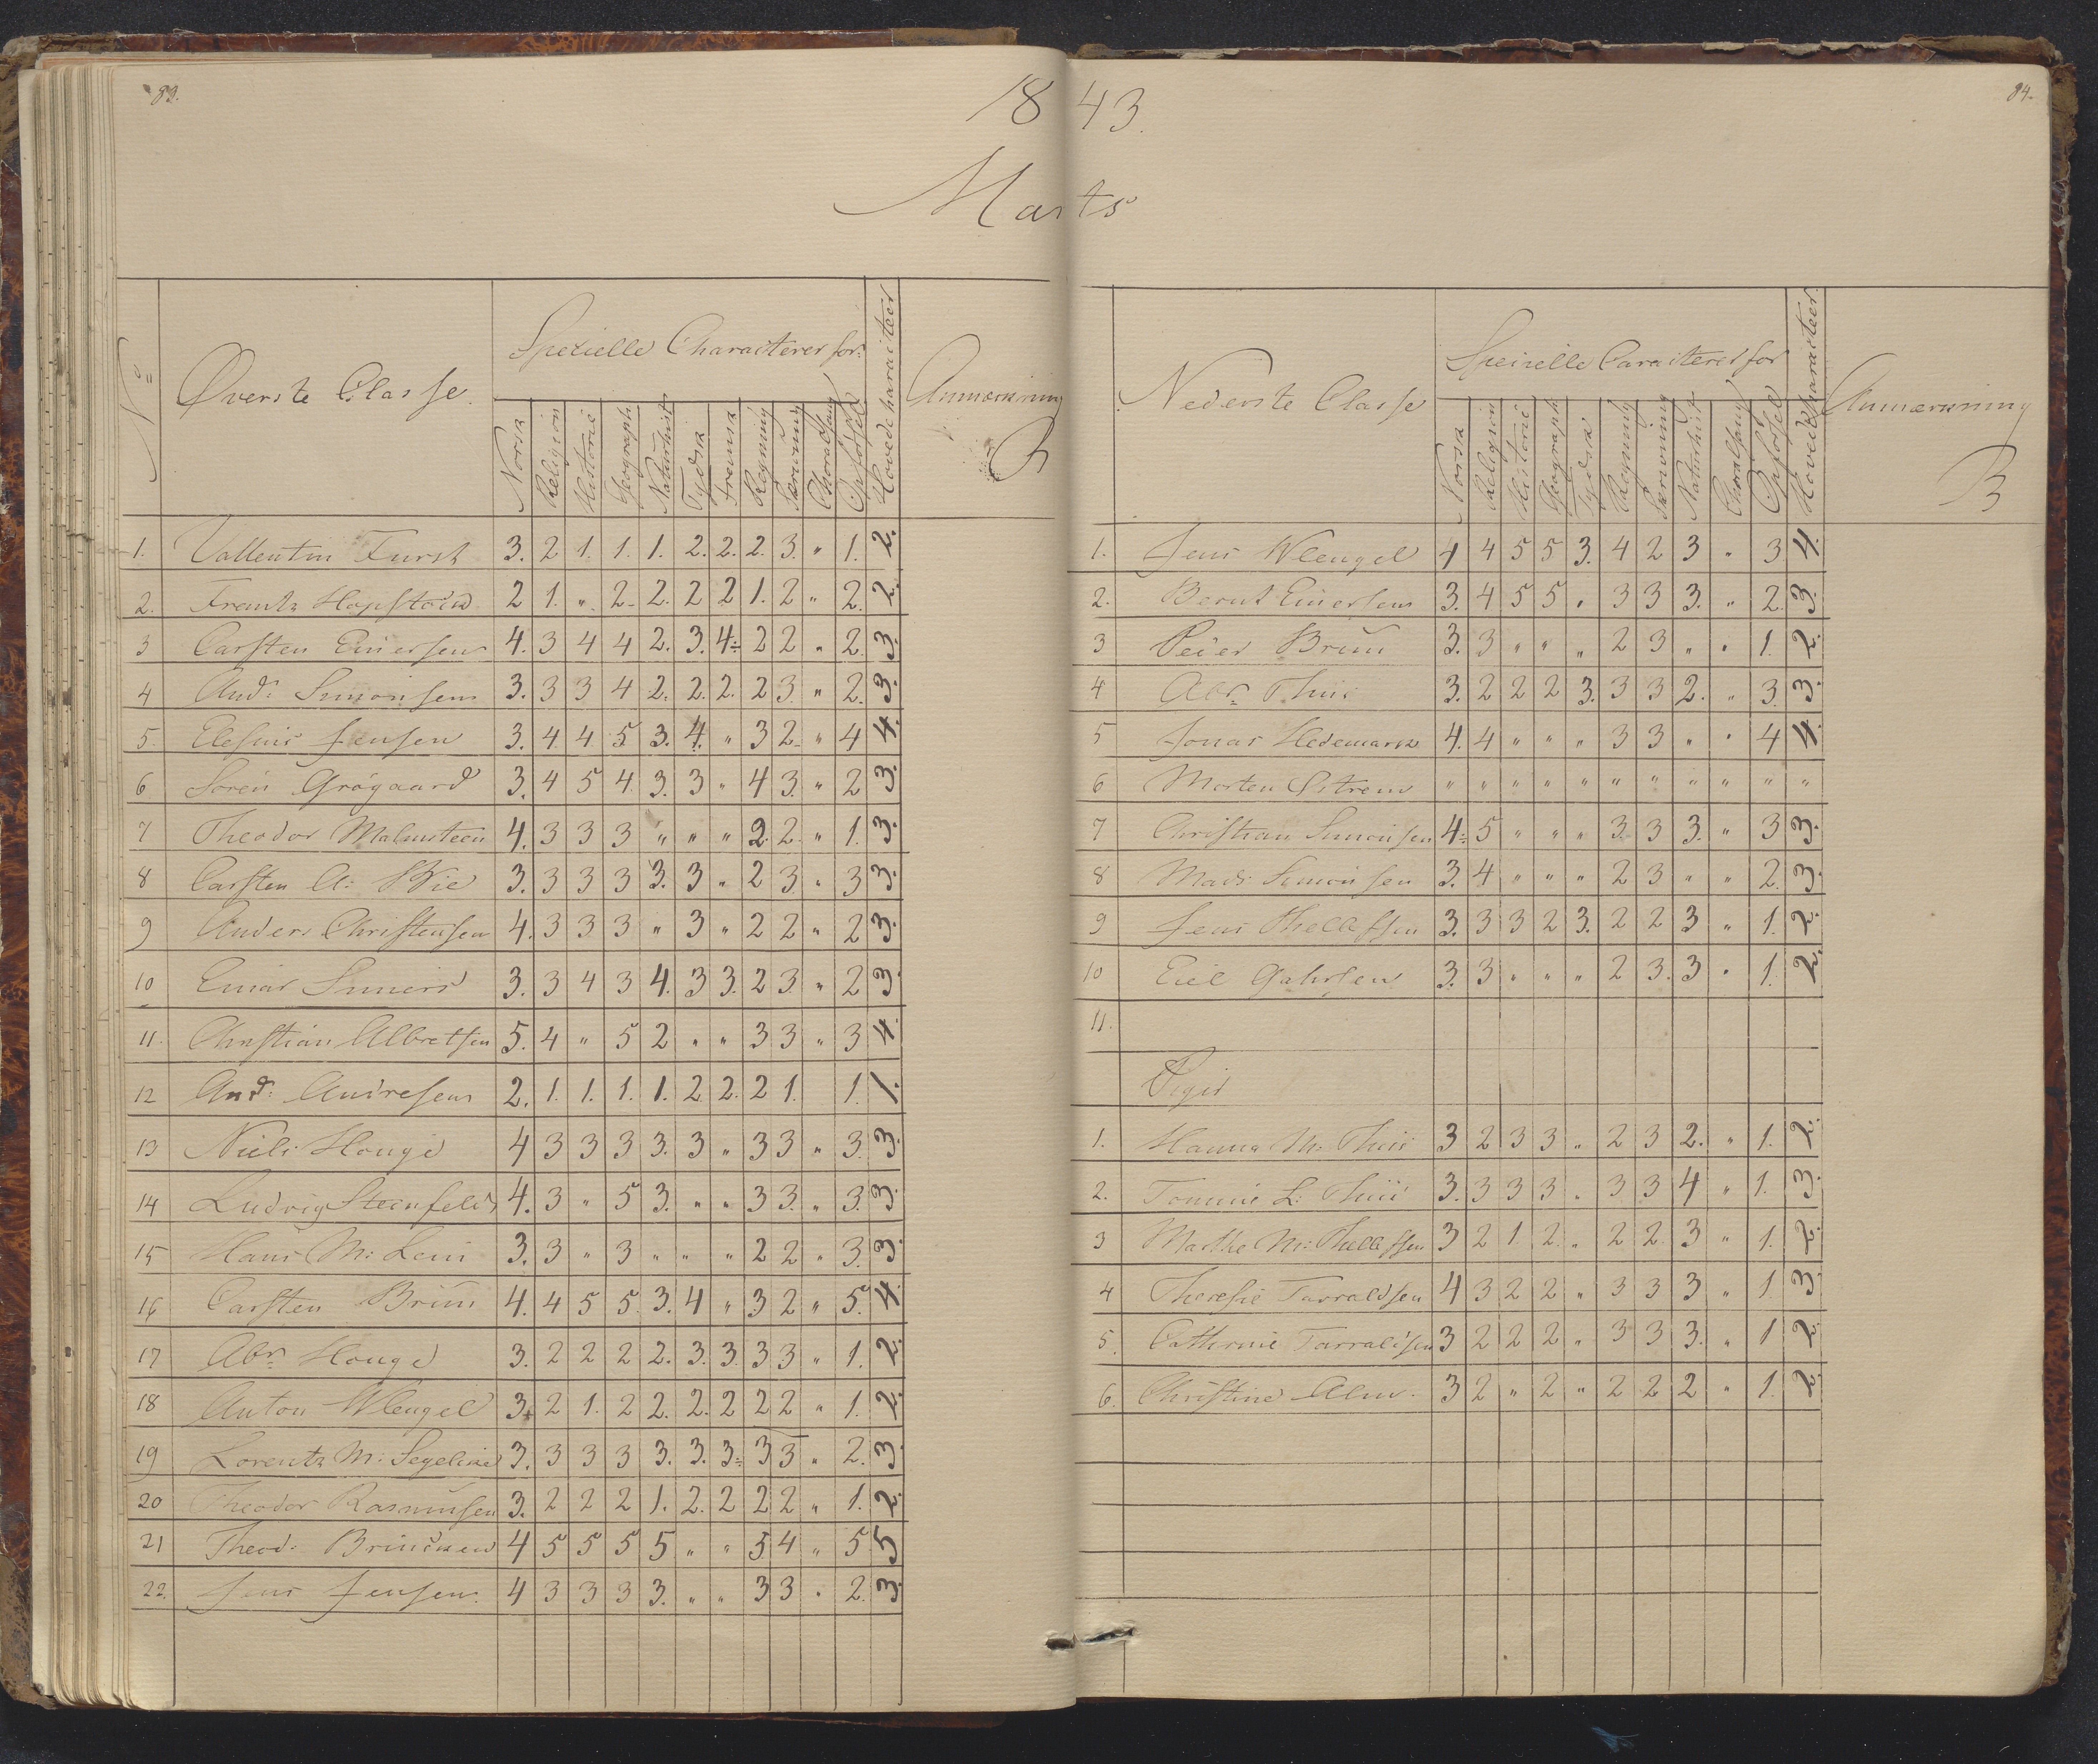 83.
1843.
84.
Marts
No
Øverste Classe.
Specielle Characterer for:
Norsk
Religion
Historie
Geograph
Naturhist
Tydsk
Fransk
Regning
Skrivning
Choralsang
Opførsel
Hovedcharacteer
Anmærkning
1. Vallentin Fürst 3. 2 1. 1. 1. 2. 2. 2. 3. " 1. 2.
2. Frantz Hopstock 2 1. " 2. 2. 2 2 1. 2 " 2. 2.
3 Carsten Einersen 4. 3 4 4 2. 3. 4÷ 2 2 " 2. 3.
4 And: Simonsen 3. 3 3 4 2. 2. 2. 2 3. " 2. 3.
5. Jensen 3. 4 4 5 3. 4. " 3 2. " 4 4.
6 Søren Grøgaard 3. 4 5 4. 3. 3 " 4 3. " 2 3.
7 Theodor Malmsteen 4. 3 3 3 " " " 2. 2. " 1. 3.
8 Carsten A: Bie 3. 3 3 3 3. 3 " 2 3. " 3 3.
9 Anders Christensen 4. 3 3 3 " 3 " 2 2 " 2 3.
10 Einar 3. 3 4 3 4. 3 3. 2 3. " 2 3.
11. Christian Albretsen 5. 4 " 5 2 " " 3 3 " 3 4.
12 And: Andresen 2. 1. 1. 1. 1. 2 2. 2 1. 1. 1.
13 Niels Houge 4 3 3 3 3. 3 " 3 3 " 3. 3.
14 Ludvig Steenfeldt 4. 3 " 5 3. " " 3 3. " 3. 3.
15 Hans M: 3. 3 " 3 " " " 2 2 " 3. 3.
16 Carsten Bruun 4. 4 5 5. 3. 4 " 3 2 " 5. 4.
17 Abr: Houge 3. 2 2 2 2. 3. 3. 3 3 " 1. 2.
18 Anton Wengel 3+ 2 1. 2 2. 2. 2 2 2 " 1. 2.
19 Lorentz M: Segelcke 3. 3 3 3 3. 3. 3÷ 3 3 " 2. 3
20 Theodor Rasmussen 3. 2 2 2 1. 2. 2 2 2 " 1. 2.
21 Theod: Brincken 4 5 5 5 5 " " 5 4 " 5 5
22. Jens Jensen. 4 3 3 3 3. " " 3 3 " 2. 3.
Nederste Classe
Specielle Caracterer for
Norsk
Religion
Historie
Geograph
Tydsk
Regning
Skrivning
Naturhist
Choralsang
Opførsel
Hovedcharacteer
Anmærkning
1. Jens Wengel 4 4 5 5 3. 4 2 3 " 3 4.
2. Bernt Einersen 3. 4 5 5 " 3 3 3. " 2. 3.
3 Peder Bruun 3. 3 " " " 2 3 " " 1. 2.
4 Abr: Thiis 3. 2 2 2 3. 3 3 2. " 3. 3.
5 Jonas Hedemark 4. 4 " " " 3 3 " " 4 4.
6 Morten " " " " " " " " " " "
7 Christian Simonsen 4÷ 5 " " " 3. 3 3. " 3 3.
8 Mads Simonsen 3. 4 " " " 2 3 " " 2. 3.
9 Jens Thellefsen 3. 3 3 2 3. 2 2 3 " 1. 2.
10 Gahrsen 3. 3 " " " 2 3. 3 " 1. 2.
11.
Piger
1. Hanna M: Thiis 3 2 3 3 " 2 3 2. " 1. 2.
2. Tommine L: Thiis 3. 3 3 3 " 3 3 4 " 1. 3.
3 Marthe M: Thellefsen 3 2 1 2. " 2 2. 3 " 1. 2.
4 Therese Tarraldsen 4 3 2 2 " 3 3 3 " 1. 3
5. Cathrine Tarraldsen 3 2 2 2 " 3 3 3. " 1 2.
6. Christine Alm. 3 2 " 2 " 2 2 2 " 1. 2.